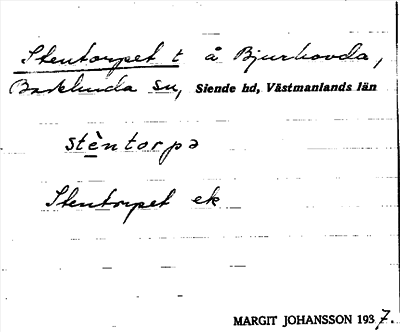 Stentorpet t å Bjurhovda,
Badelunda sn, Siende hd, Västmanlands län
stèntorpə
Stentorpet ek
MARGIT JOHANSSON 1937.